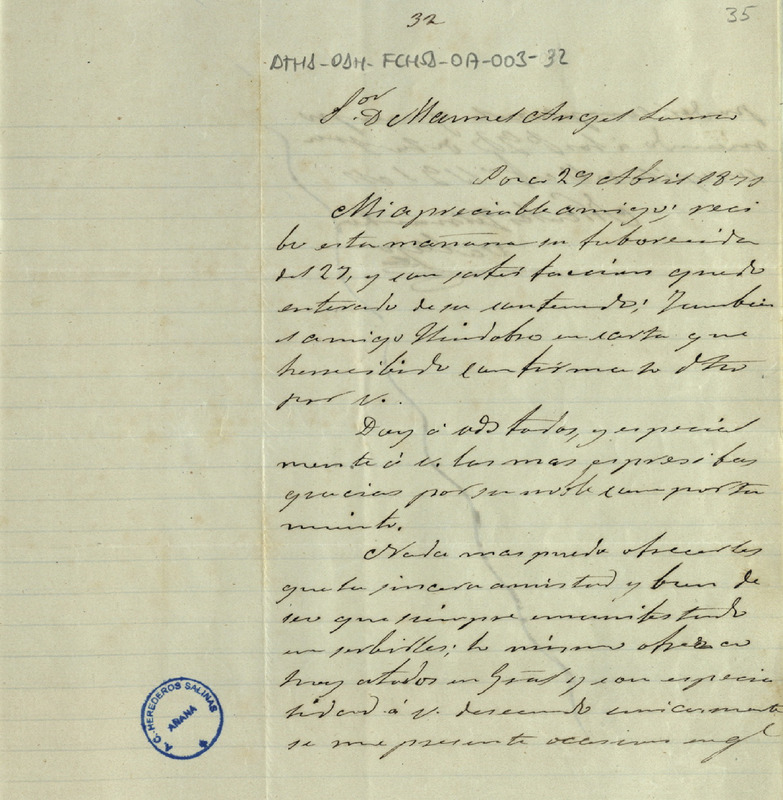 32
35
DTHA-OSH-FCHSA-OA-003-32
Sor D Manuel Angel
29 Abril 1871
Mi apreciable amigo; reci
bo esta mañana su faborecida
del 27, y con satisfaccion quedo
enterado de su contenido; Tambien
el amigo Huidobro en carta que
he recibido confirma lo dho
por V.
Doy á Vds todos, y especial
mente á V. las mas espresibas
gracias por su noble comporta
miento.
Nada mas puedo ofrecerles
que la sincera amistad y buen de
seo que siempre e manifestado
en serbirles; lo mismo ofrezco
hoy a todos en Gral y con especia
lidad á V. deseando unicamente
se me presente ocasion en ql
A. C. HEREDEROS SALINAS
AÑANA